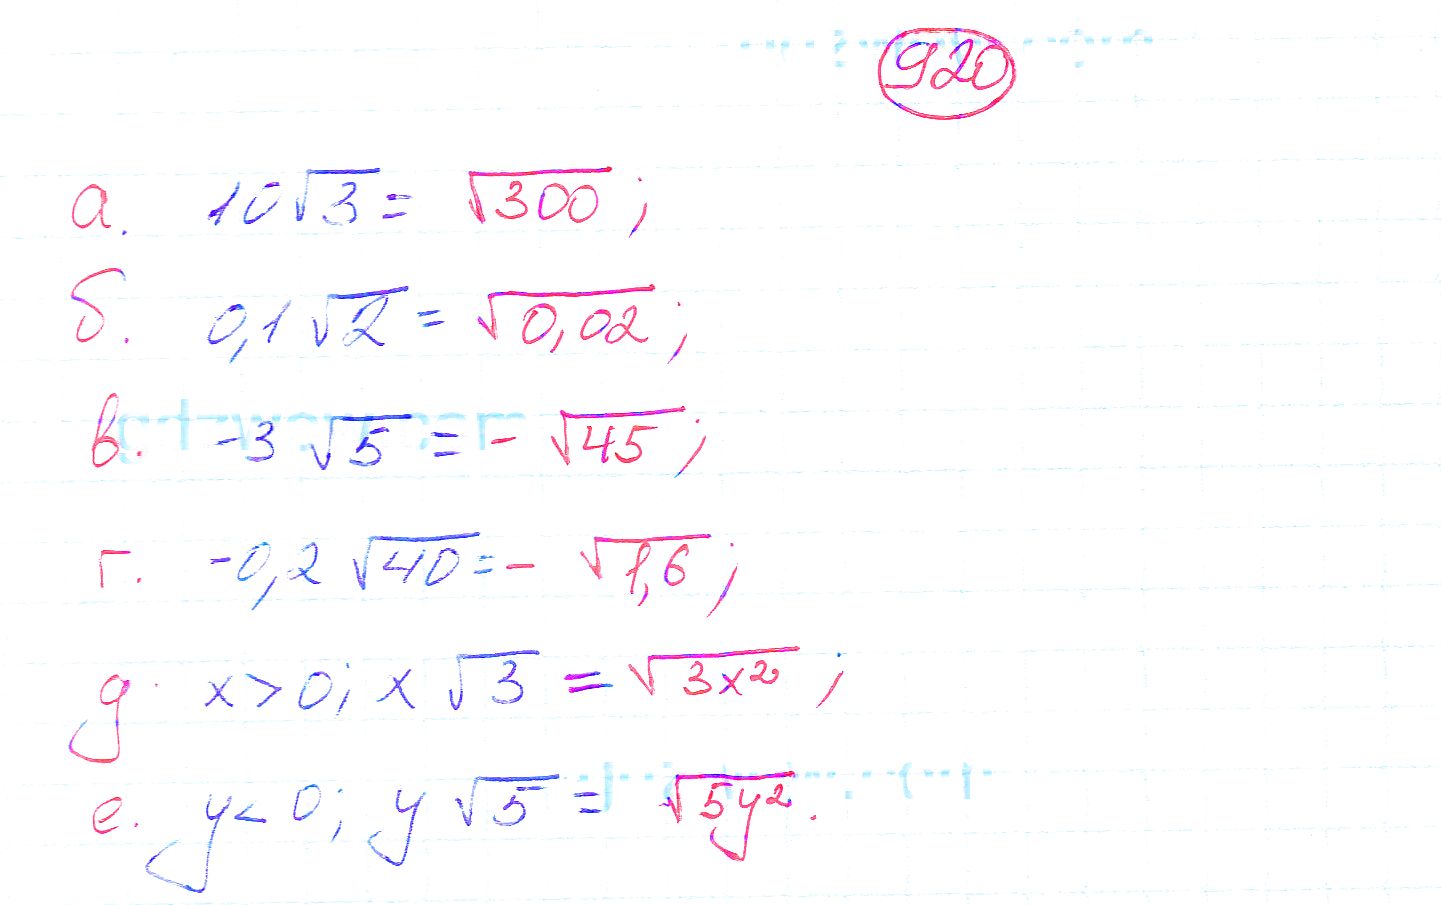 920
а. 10√3 = √300;
б. 0,1√2 = √0,02;
в. -3√5 = -√45;
г. -0,2√40 = -√1,6;
д. x>0; x√3 = √3x²;
е. y<0; y√5 = √5y².